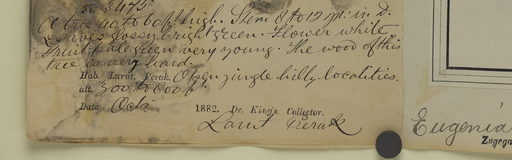 No. 3475
A tree 40 to 60 ft. high. Stem 8 to 12 in. in D.
Leaves glossy bright green. Flower white
Fruit pale green very young. The wood of this
tree is very hard.
Hab. Larut, Perak. Open jungle hilly localities.
alt. 300 to 600 ft.
Date Oct. 1882. Dr. King's Collector.
Larut Perak
Eugenia
Zugega